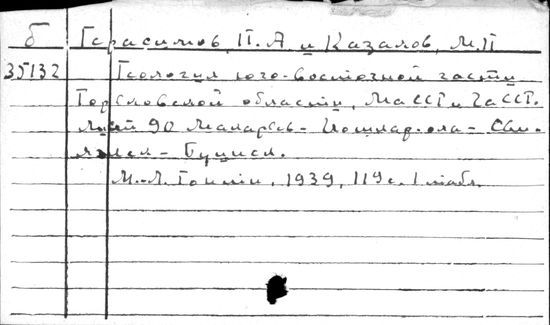 б Герасимов, П.А и Казаков, М.П
35132 Геология юго-восточной части
Горьковской области, Мар ССР и ЧАССР.
Лист 90 Макарьев - Йошкар-ола - Сви-
яжск - Буинск.
М.-Л. Гонти, 1939, 119с. 1 табл.